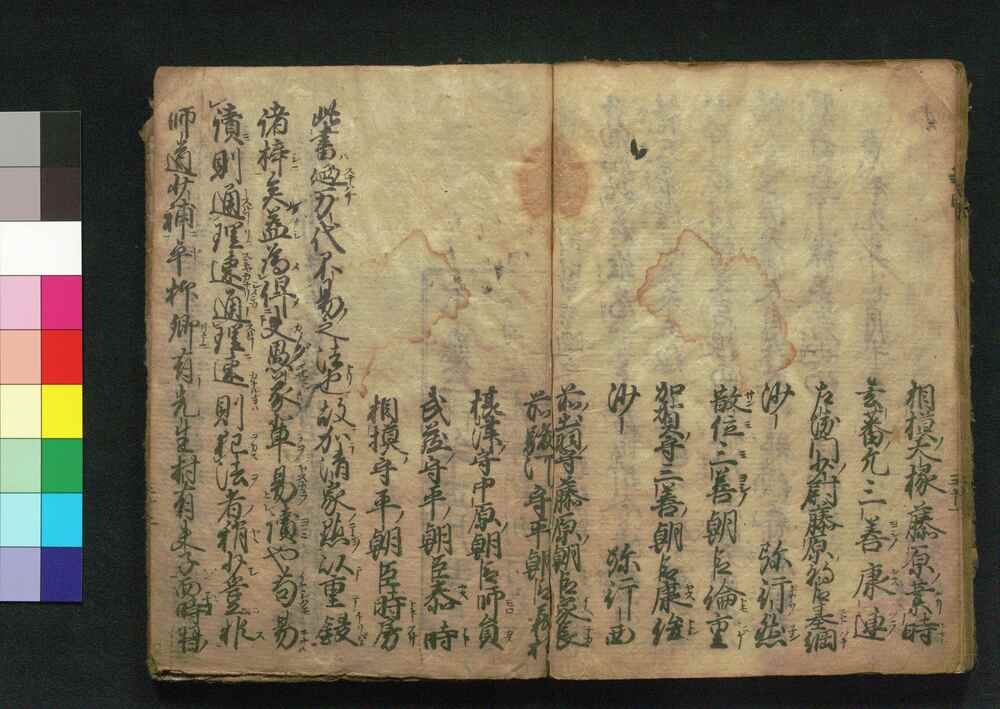 相模大掾藤原業時
玄蕃允三善康連
左衛門少尉藤原朝臣基綱
沙弥行然
散位三善朝臣倫重
加賀守三善朝臣康俊
沙弥行西
前出羽守藤原朝臣家長
前駿河守平朝臣義村
摂津守中原朝臣師員
武蔵守平朝臣泰時
相摸守平朝臣時房
此書迺万代不易之法也故加清家點以重鋟
諸梓矣益為俾叟愚家車易讀也苟易
讀則通理速通理速則犯法者稍少豈非
師道補乎抑郷有先生村有夫子而時習